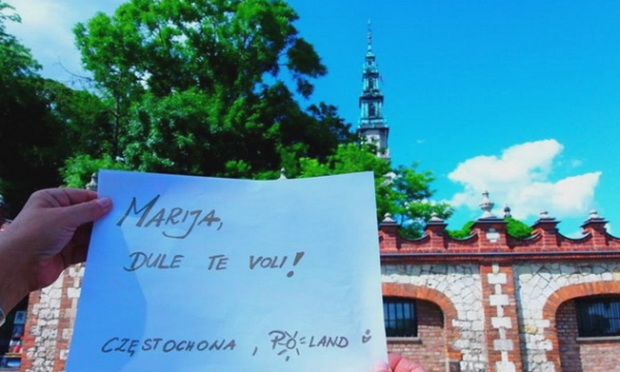 MARIJA,
DULE TE VOLI!
CZĘSTOCHONA, POLAND